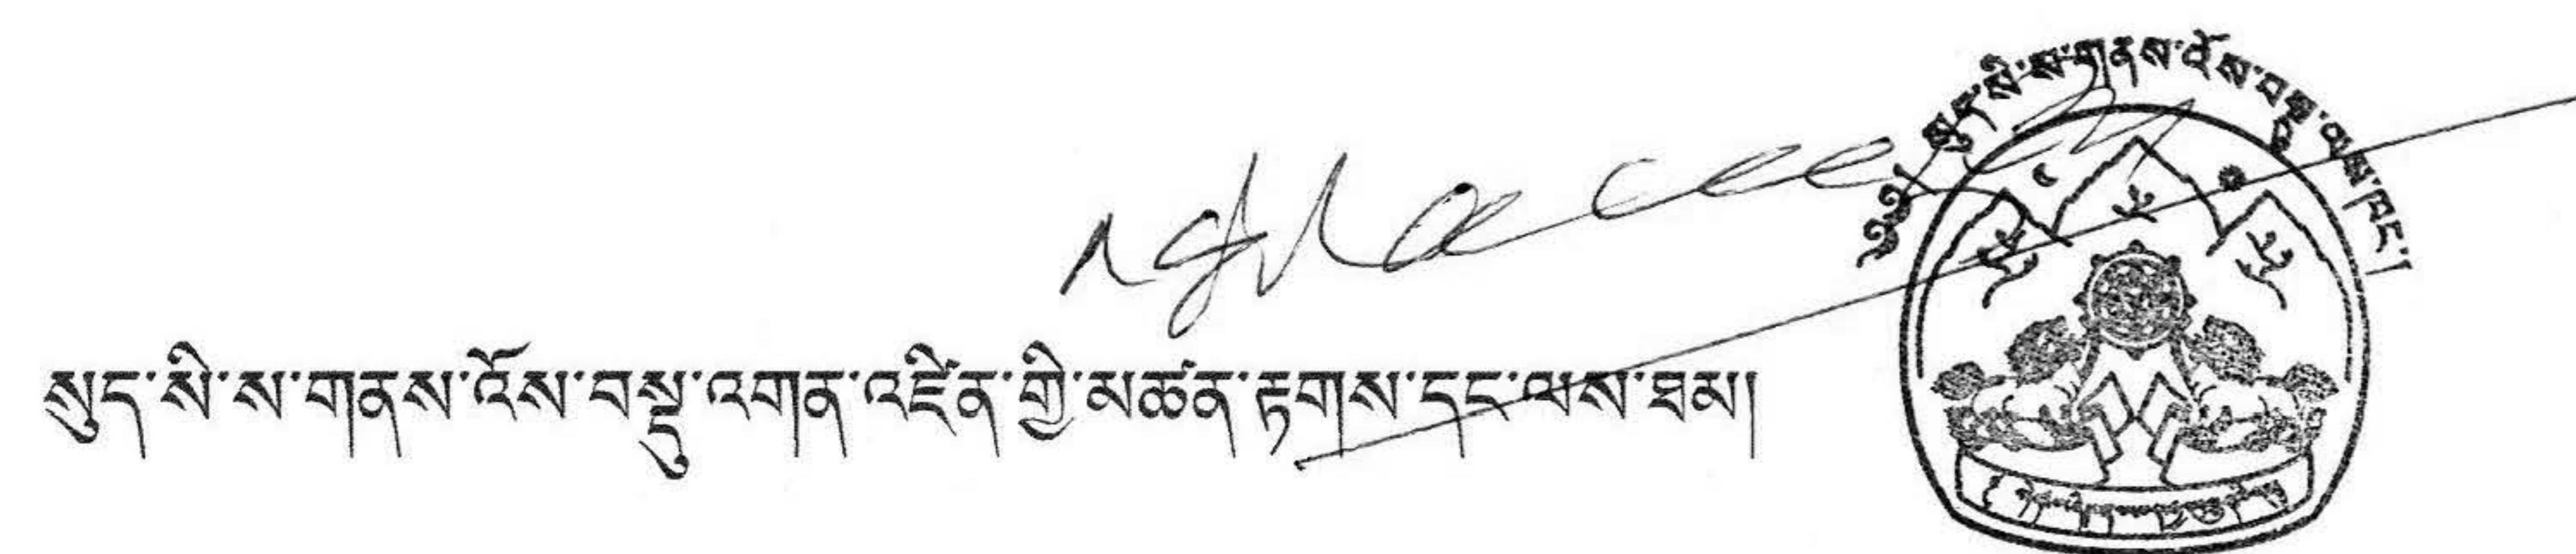 ༄༅། །སུད་སི་ས་གནས་འོས་བསྡུ་ལས་ཁང་།
སུད་སི་ས་གནས་འོས་བསྡུ་འགན་འཛིན་གྱི་མཚན་རྟགས་དང་ལས་ཐམ།